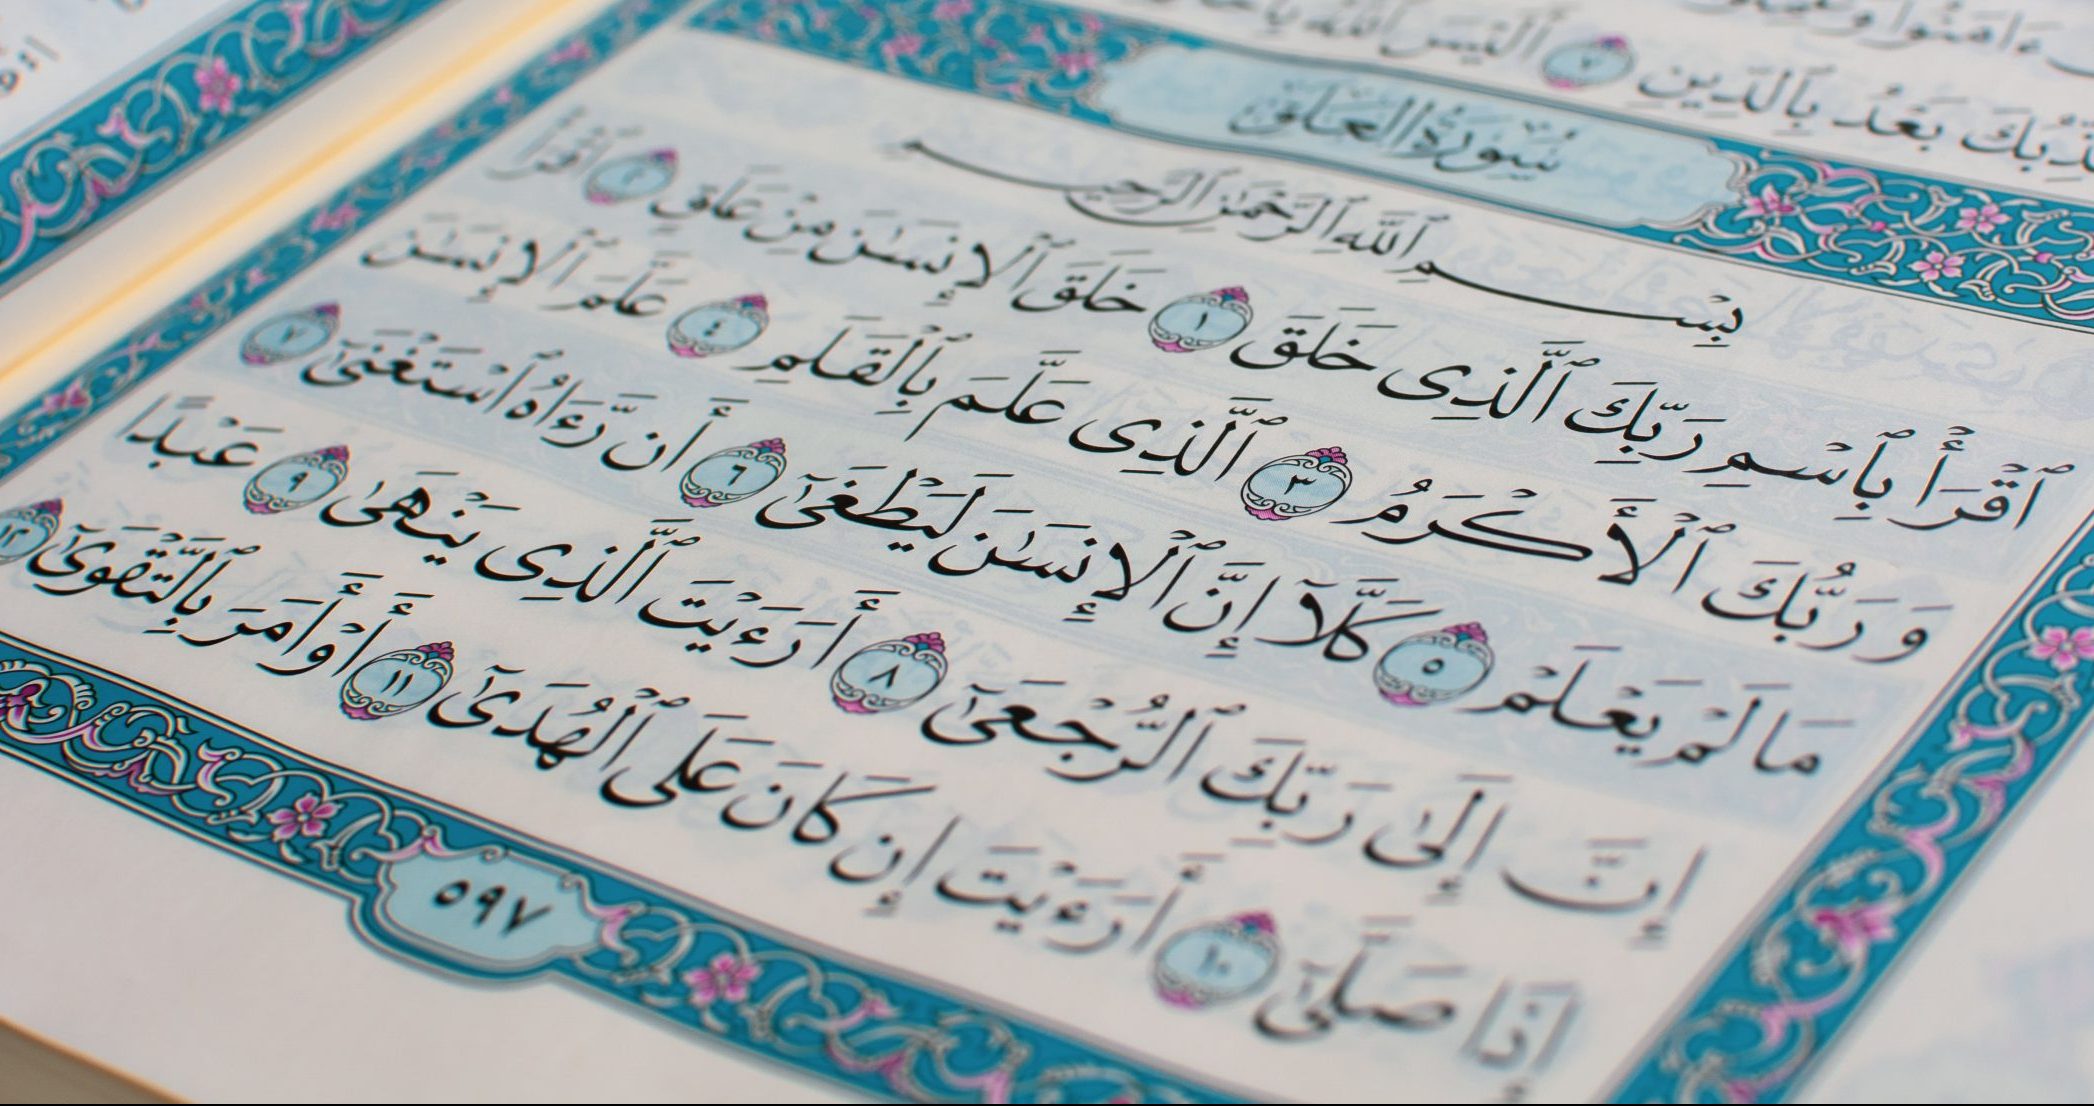 ءَامَنُوا۟
بَعْدُ بِٱلدِّينِ ٧ أَلَيْسَ ٱللَّهُ
سُورَةُ العَلَقِ
بِسْمِ ٱللَّهِ ٱلرَّحْمَـٰنِ ٱلرَّحِيمِ
ٱقْرَأْ بِٱسْمِ رَبِّكَ ٱلَّذِى خَلَقَ ١ خَلَقَ ٱلْإِنسَـٰنَ مِنْ عَلَقٍ ٢ ٱقْرَأْ
وَرَبُّكَ ٱلْأَكْرَمُ ٣ ٱلَّذِى عَلَّمَ بِٱلْقَلَمِ ٤ عَلَّمَ ٱلْإِنسَـٰنَ
مَا لَمْ يَعْلَمْ ٥ كَلَّآ إِنَّ ٱلْإِنسَـٰنَ لَيَطْغَىٰٓ ٦ أَن رَّءَاهُ ٱسْتَغْنَىٰٓ ٧
إِنَّ إِلَىٰ رَبِّكَ ٱلرُّجْعَىٰٓ ٨ أَرَءَيْتَ ٱلَّذِى يَنْهَىٰ ٩ عَبْدًا
إِذَا صَلَّىٰٓ ١٠ أَرَءَيْتَ إِن كَانَ عَلَى ٱلْهُدَىٰٓ ١١ أَوْ أَمَرَ بِٱلتَّقْوَىٰٓ ١٢
٥٩٧